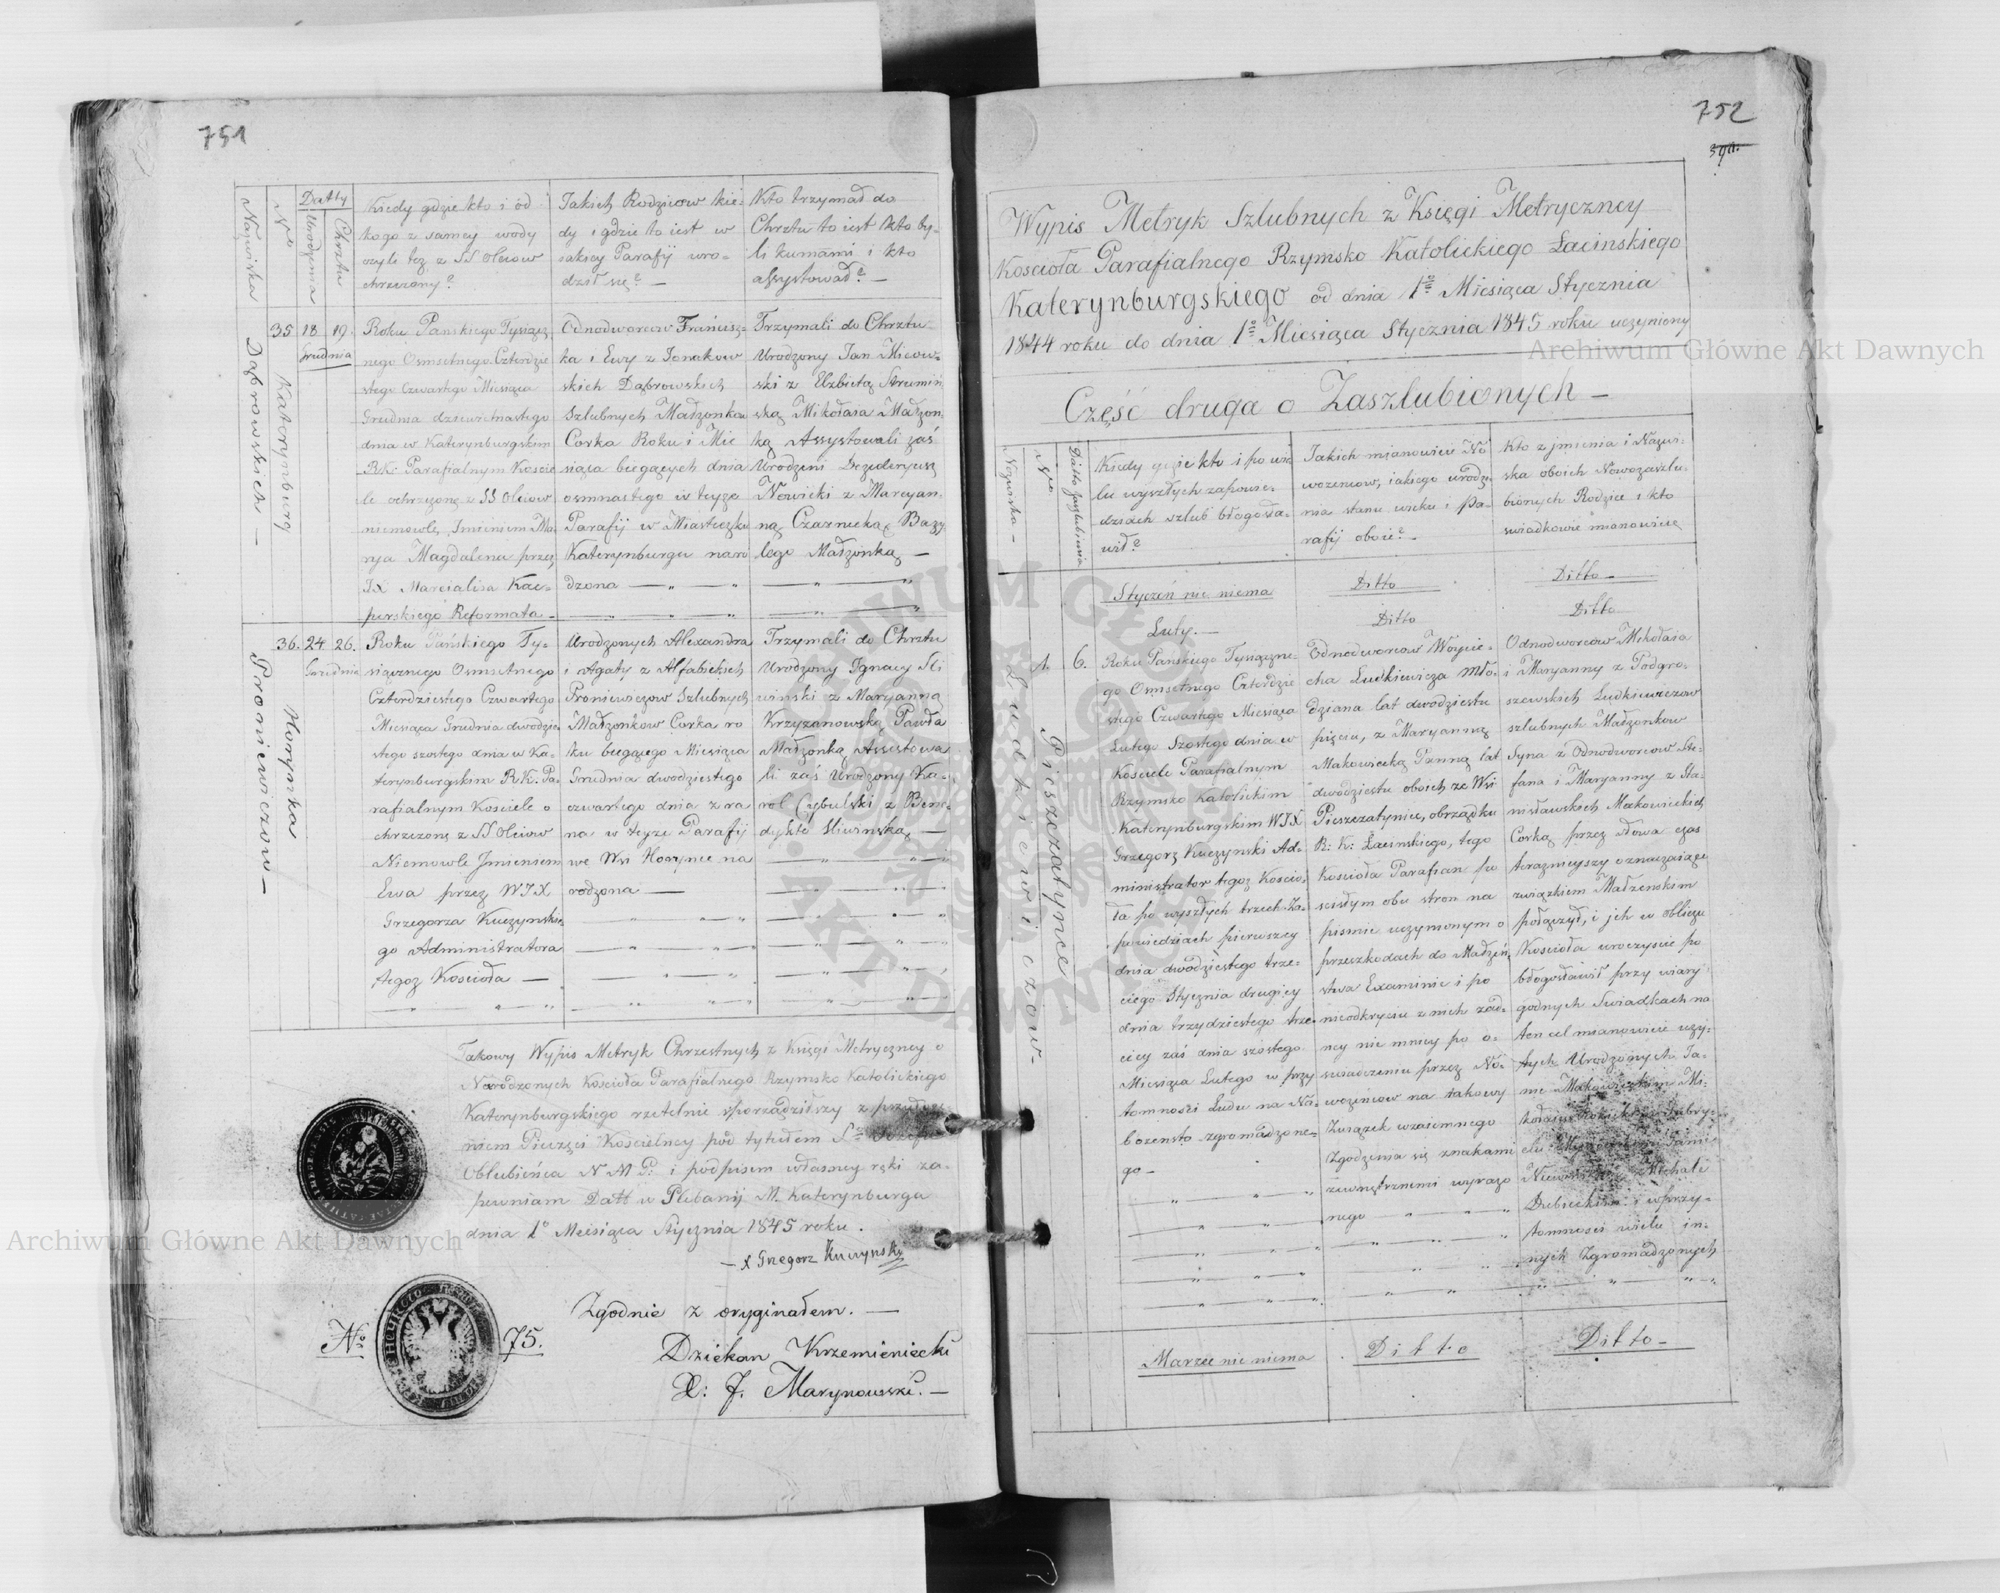 751
Nazwiska
No
Datty
Urodzenia
Chrztu
Kiedy gdzie kto i od
kogo z samey wody
czyli tez z SS Oleiow
chrzczony?
Jakich Rodzicow kie-
dy i gdzie to iest w
iakiey Parafii uro-
dził się? —
Kto trzymał do
Chrztu to iest kto by-
li kumami i kto
assystował? —
Dąbrowskich —
35
Katerynburg
18
19.
Grudnia
Roku Panskiego Tysiącz
nego Osmsetnego Czterdzie
stego Czwartego Miesiąca
Grudnia dziewietnastego
dnia w Katerynburgskim
R:K: Parafialnym Koscie
le ochrzczoną z SS Oleiow
niemowle, Imieniem Ma-
rya Magdalena przez
JX Marcialisa Kac-
perskiego Reformata —
Odnodworcow Francisz-
ka i Ewy z Jonakow
skich Dąbrowskich
Szlubnych Małzonkow
Corka Roku i Mie
siąca biegących dnia
osmnastego w teyże
Parafij w Miasteczku
Katerynburgu naro
dzona —
Trzymali do Chrztu
Urodzony Jan Micow-
ski z Elzbietą Strumiń
ską Mikołaia Małzon
ką Assystowali zaś
Urodzeni Dezyderyusz
Nowicki z Marcyan-
ną Czarnecką Bazy
lego Małzonką —
Proniewiczow —
36.
Horynka
24
26.
Grudnia
Roku Pańskiego Ty-
siącznego Osmsetnego
Czterdziestego Czwartego
Miesiąca Grudnia dwodzie
stego szostego dnia w Ka-
terynburgskim R.K. Pa-
rafialnym Kosciele o
chrzczoną z SS Oleiow
Niemowle Jmieniem
Ewa przez WJX.
Grzegorza Kuczynskie-
go Administratora
tegoz Kościoła —
Urodzonych Alexandra
i Agaty z Alfabickich
Proniewiczow Szlubnych
Małżonkow Corka ro
ku biegącego Miesiąca
Grudnia dwodziestego
czwartego dnia z ra
na w teyze Parafij
we Wsi Horynce na
rodzona —
Trzymali do Chrztu
Urodzony Ignacy Sli
winski z Maryanną
Krzyzanowską Pawła
Małzonką Assistowa
li zaś Urodzony Ka-
rol Cybulski z Bene-
dyktą Sliwinską —
Takowy Wypis Metryk Chrzestnych z Księgi Metryczney o
Narodzonych Kościoła Parafialnego Rzymsko Katolickiego
Katerynburgskiego rzetelnie sporządziwszy z
niem Pieczęci Koscielney pod tytułem Sgo
Oblubieńca N M P: i podpisem własney ręki za-
pewniam Datt w Plebanij M. Katerynburga
dnia 1o Miesiąca Stycznia 1845 roku.
— x Grzegorz Kuczynski
No 75.
Zgodnie z oryginałem. —
Dziekan Krzemieniecki
X: J. Marynowski. —
752
Wypis Metryk Szlubnych z Księgi Metryczney
Kościoła Parafialnego Rzymsko Katolickiego Łacinskiego
Katerynburgskiego od dnia 1go Miesiąca Stycznia
1844 roku do dnia 1o Miesiąca Stycznia 1845 roku uczyniony
Część druga o Zaszlubionych —
Nazwiska —
No
Datta zaszlubienia
Kiedy gdzie kto i po wie
lu wyszłych zapowie-
dziach szlub błogosła-
wił?
Jakich mianowicie No
wozencow, iakiego urodze-
nia stanu wieku i Pa-
rafij oboie? —
Kto z jmienia i Nazwi-
ska oboich Nowozaszlu-
bionych Rodzice i kto
swiadkowie mianowicie
Styczeń nic niema
Ditto
Ditto —
Luty. —
Ditto
Ditto
Ludkiewiczow —
1.
Pieszczatynce
6.
Roku Pańskiego Tysiączne-
go Osmsetnego Czterdzie
stego Czwartego Miesiąca
Lutego Szostego dnia w
Kościele Parafialnym
Rzymsko Katolickim
Katerynburgskim WJX
Grzegorz Kuczynski Ad-
ministrator tegoz Koscio-
ła po wyszłych trzech Za-
powiedziach pierwszey
dnia dwodziestego trze-
ciego Stycznia drugiey
dnia trzydziestego trze-
ciey zaś dnia szostego
Miesiąca Lutego w przy
tomności Ludu na Na-
bozensto zgromadzone-
go —
Odnodworcow Woycie-
cha Ludkiewicza Mło-
dziana lat dwodziestu
pięciu, z Maryanną
Makowiecką Panną lat
dwodziestu oboich ze Wsi
Pieszczatyniec, obrządku
R: K: Łacinskiego, tego
Kościoła Parafian po
scisłym obu stron na
pismie uczynionym o
przeszkodach do Małżeń-
stwa Examinie i po
nieodkryciu z nich żad-
ney nie mniey po o-
swiadczeniu przez No-
wozencow na takowy
Związek wzaiemnego
Zgodzenia się znakami
zewnętrznemi wyrażo
nego
Odnodworcow Mikołaia
i Maryanny z Podgro-
szewskich Ludkiewiczow
szlubnych Małżonkow
Syna z Odnodworcow Ste-
fana i Maryanny z Sta-
nisławskich Makowieckich
Corką przez słowa czas
teraznieyszy oznaczaiące
związkiem Małżenskim
połączył, i jch w obliczu
Kościoła uroczyscie po
błogosławił przy wiary
godnych Swiadkach na
ten cel mianowicie uży-
tych Urodzonych Ja-
nie Makowieckim Mi-
Michale
Dubickim i w przy-
tomności wielu in-
nych Zgromadzonych
Marzec nic niema
Ditto
Ditto —
Archiwum Główne Akt Dawnych
Archiwum Główne Akt Dawnych
ARCHIWUM GŁÓWNE AKT DAWNYCH